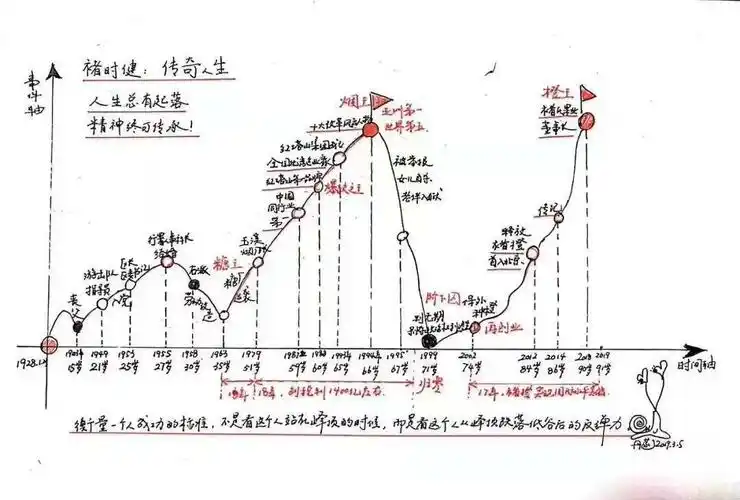 褚时健：传奇人生
人生总有起落
精神终可传承！
事件轴
烟王
亚洲第一
世界第五
十大改革风云人物
红塔山集团成立
全国优秀企业家
红塔山第一品牌
中国
同行业
第一
玉溪
烟厂
糖王
糖厂
行署人事科长
结婚
区长
区委书记
游击队
指导员
入党
丧父
右派
劳动改造
被举报
女儿自杀
老伴入狱
阶下囚
判无期
保外
种橙
再创业
释放
褚橙
首入北京
传记
橙王
褚氏果业
董事长
1928.1.
15岁
1949
21岁
1953
25岁
1955
27岁
1958
30岁
1963
35岁
1979
51岁
59岁
60岁
65岁
1994
66岁
1995
67岁
1999
71岁
2002
74岁
2012
84岁
2014
86岁
2018
90岁
2019
91岁
时间轴
16年
18年，创税利1400亿左右
归零
17年，褚橙
衡量一个人成功的标准，不是看这个人站在峰顶的时候，而是看这个人从峰顶跌落低谷后的反弹力
2019.3.5